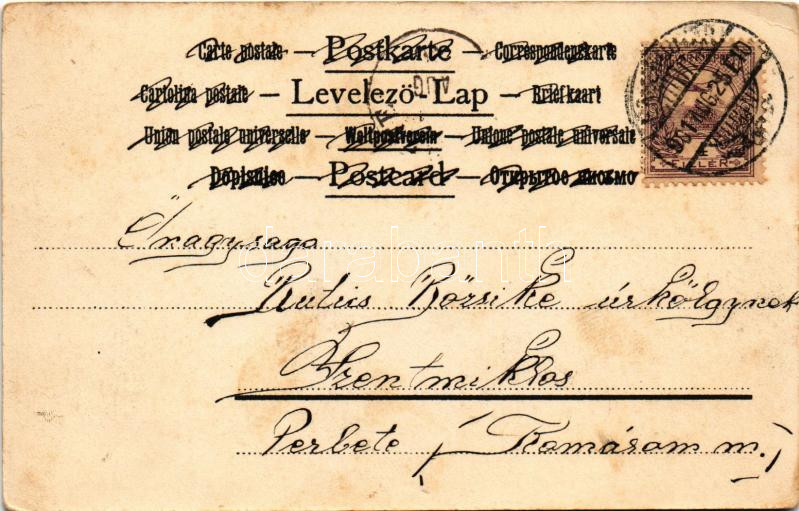 Carte postale – Postkarte – Correspondenzkarte
Cartolina postale – Levelező-Lap – Briefkaart
Union postale universelle – Weltpostverein – Unione postale universale
Dopisnice – Postcard – Открытое письмо
AUG
FILLÉR
Őnagysaga
Rózsike úrhölgynek
Szentmiklos
Perbete (Komárom m.)
darabanth